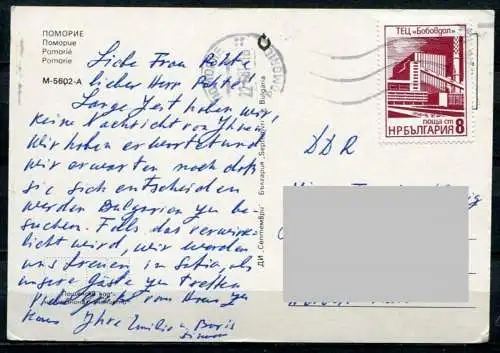 ПОМОРИЕ
Поморие
Pomorié
Pomorie
М-5602-А
Liebe Frau
lieber Herr
Lange Zeit haben wir
keine Nachricht von Ihnen.
Wir haben erwartet und
wir erwarten noch daß
sie sich entscheiden
werden Bulgarien zu be-
suchen. Falls das verwirk-
licht wird, wir werden
uns freuen in Sofia als
unsere Gäste zu treffen
von Haus zu
Haus Ihre Emilia u. Boris
ДИ „Септември“ България „Septemvri“ Bulgaria
ТЕЦ „Бобовдол“
поща ст
НР БЪЛГАРИЯ 8
DDR